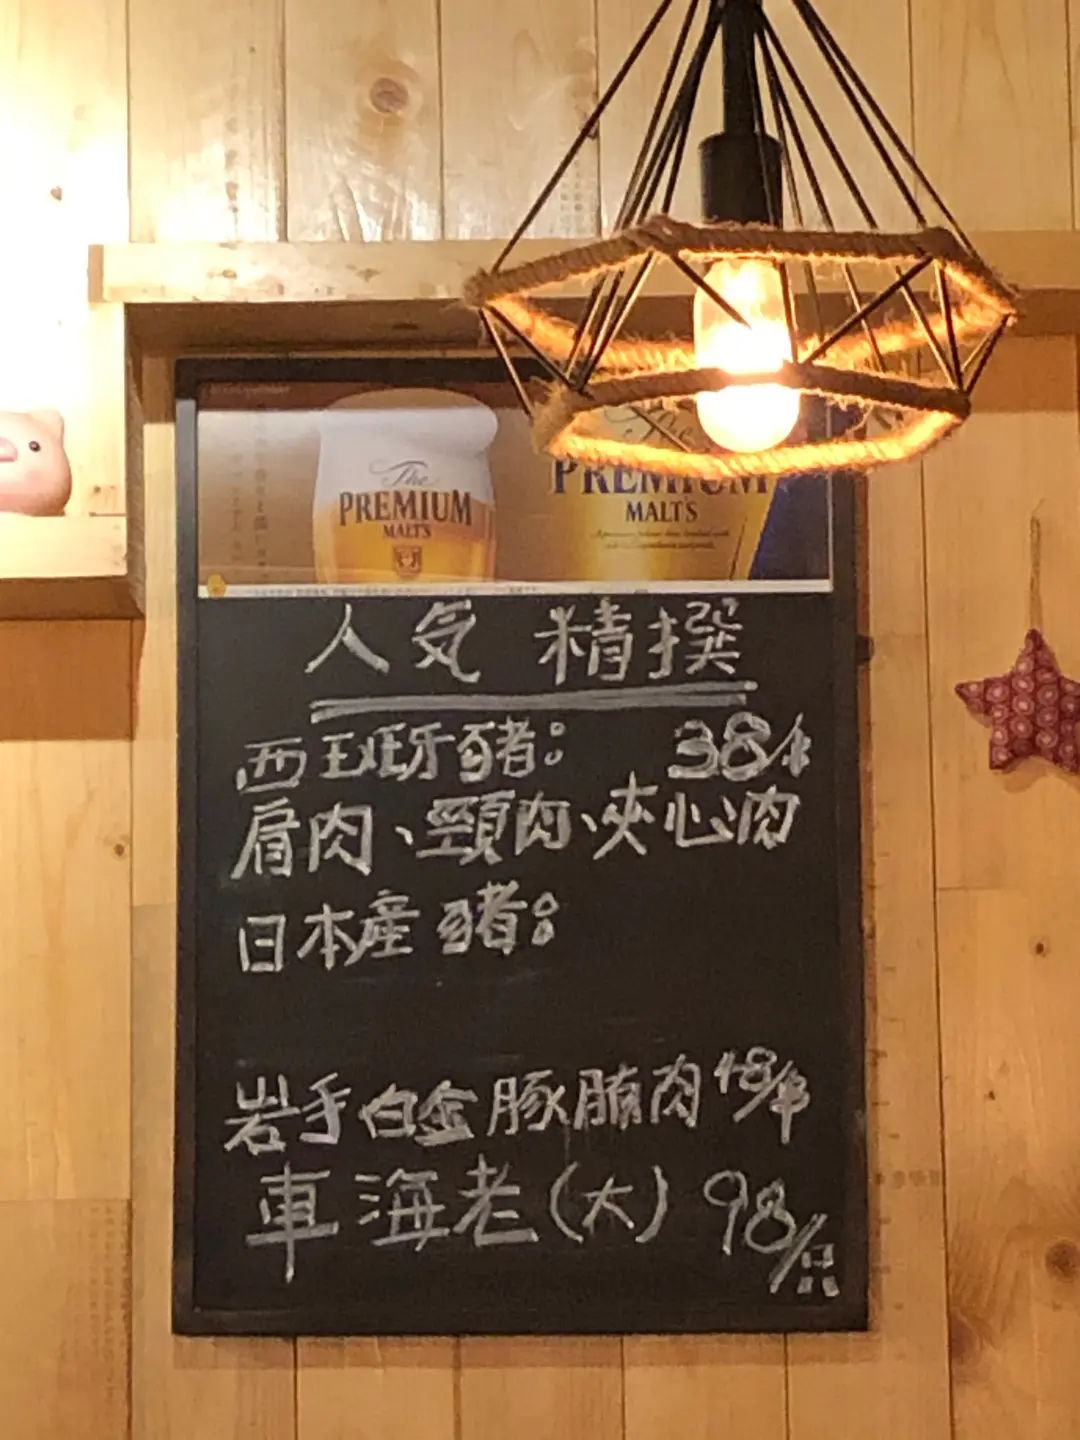 The
PREMIUM
MALT'S
The
PREMIUM
MALT'S
人気 精撰
西班牙豬: 38/串
肩肉、頸肉、夾心肉
日本產豬:
岩手白金豚腩肉 48/串
車海老(大) 98/只